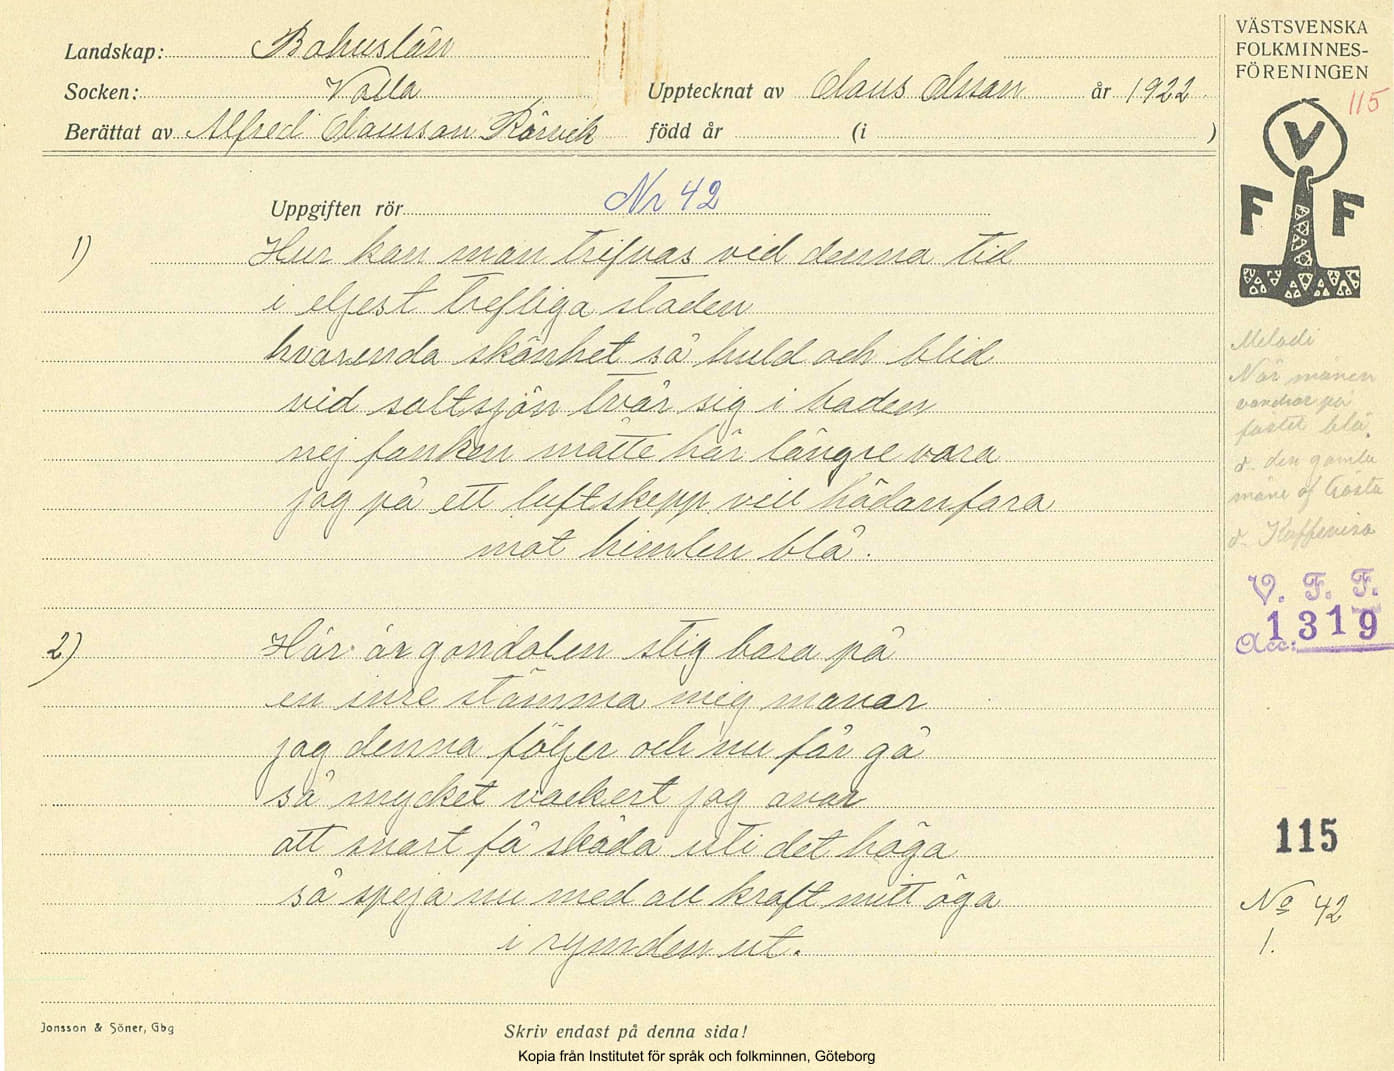 Landskap: Bohuslän
Socken: Valla
Upptecknat av Olaus Olsson år 1922
Berättat av Alfred Olausson Rörvik
född år (i )
VÄSTSVENSKA
FOLKMINNES-
FÖRENINGEN
115
V
F F
Uppgiften rör Nr 42
1) Hur kan man trifvas vid denna tid
i eljest trefliga staden
hvarenda skönhet så huld och blid
vid saltsjön tvår sig i baden
nej fanken måtte här längre vara
jag på ett luftskepp vill hädanfara
mot himlen blå.
2) Här är gondolen stig bara på
en inre stämma mig manar
jag denna följer och nu får gå
så mycket vackert jag anar
att snart få skåda uti det höga
så speja nu med all kraft mitt öga
i rymden ut.
Melodi
När månen
vandrar på
fästet blå.
d. den gamla
måne
d. Kaffevisa
V. F. F.
Acc: 1319
115
No 42
1.
Jonsson & Söner, Gbg
Skriv endast på denna sida!
Kopia från Institutet för språk och folkminnen, Göteborg